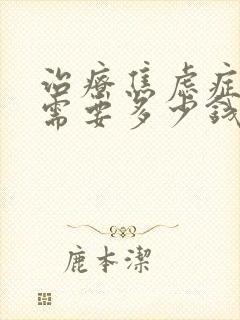 治療焦虑症
需要多少錢
鹿本潔